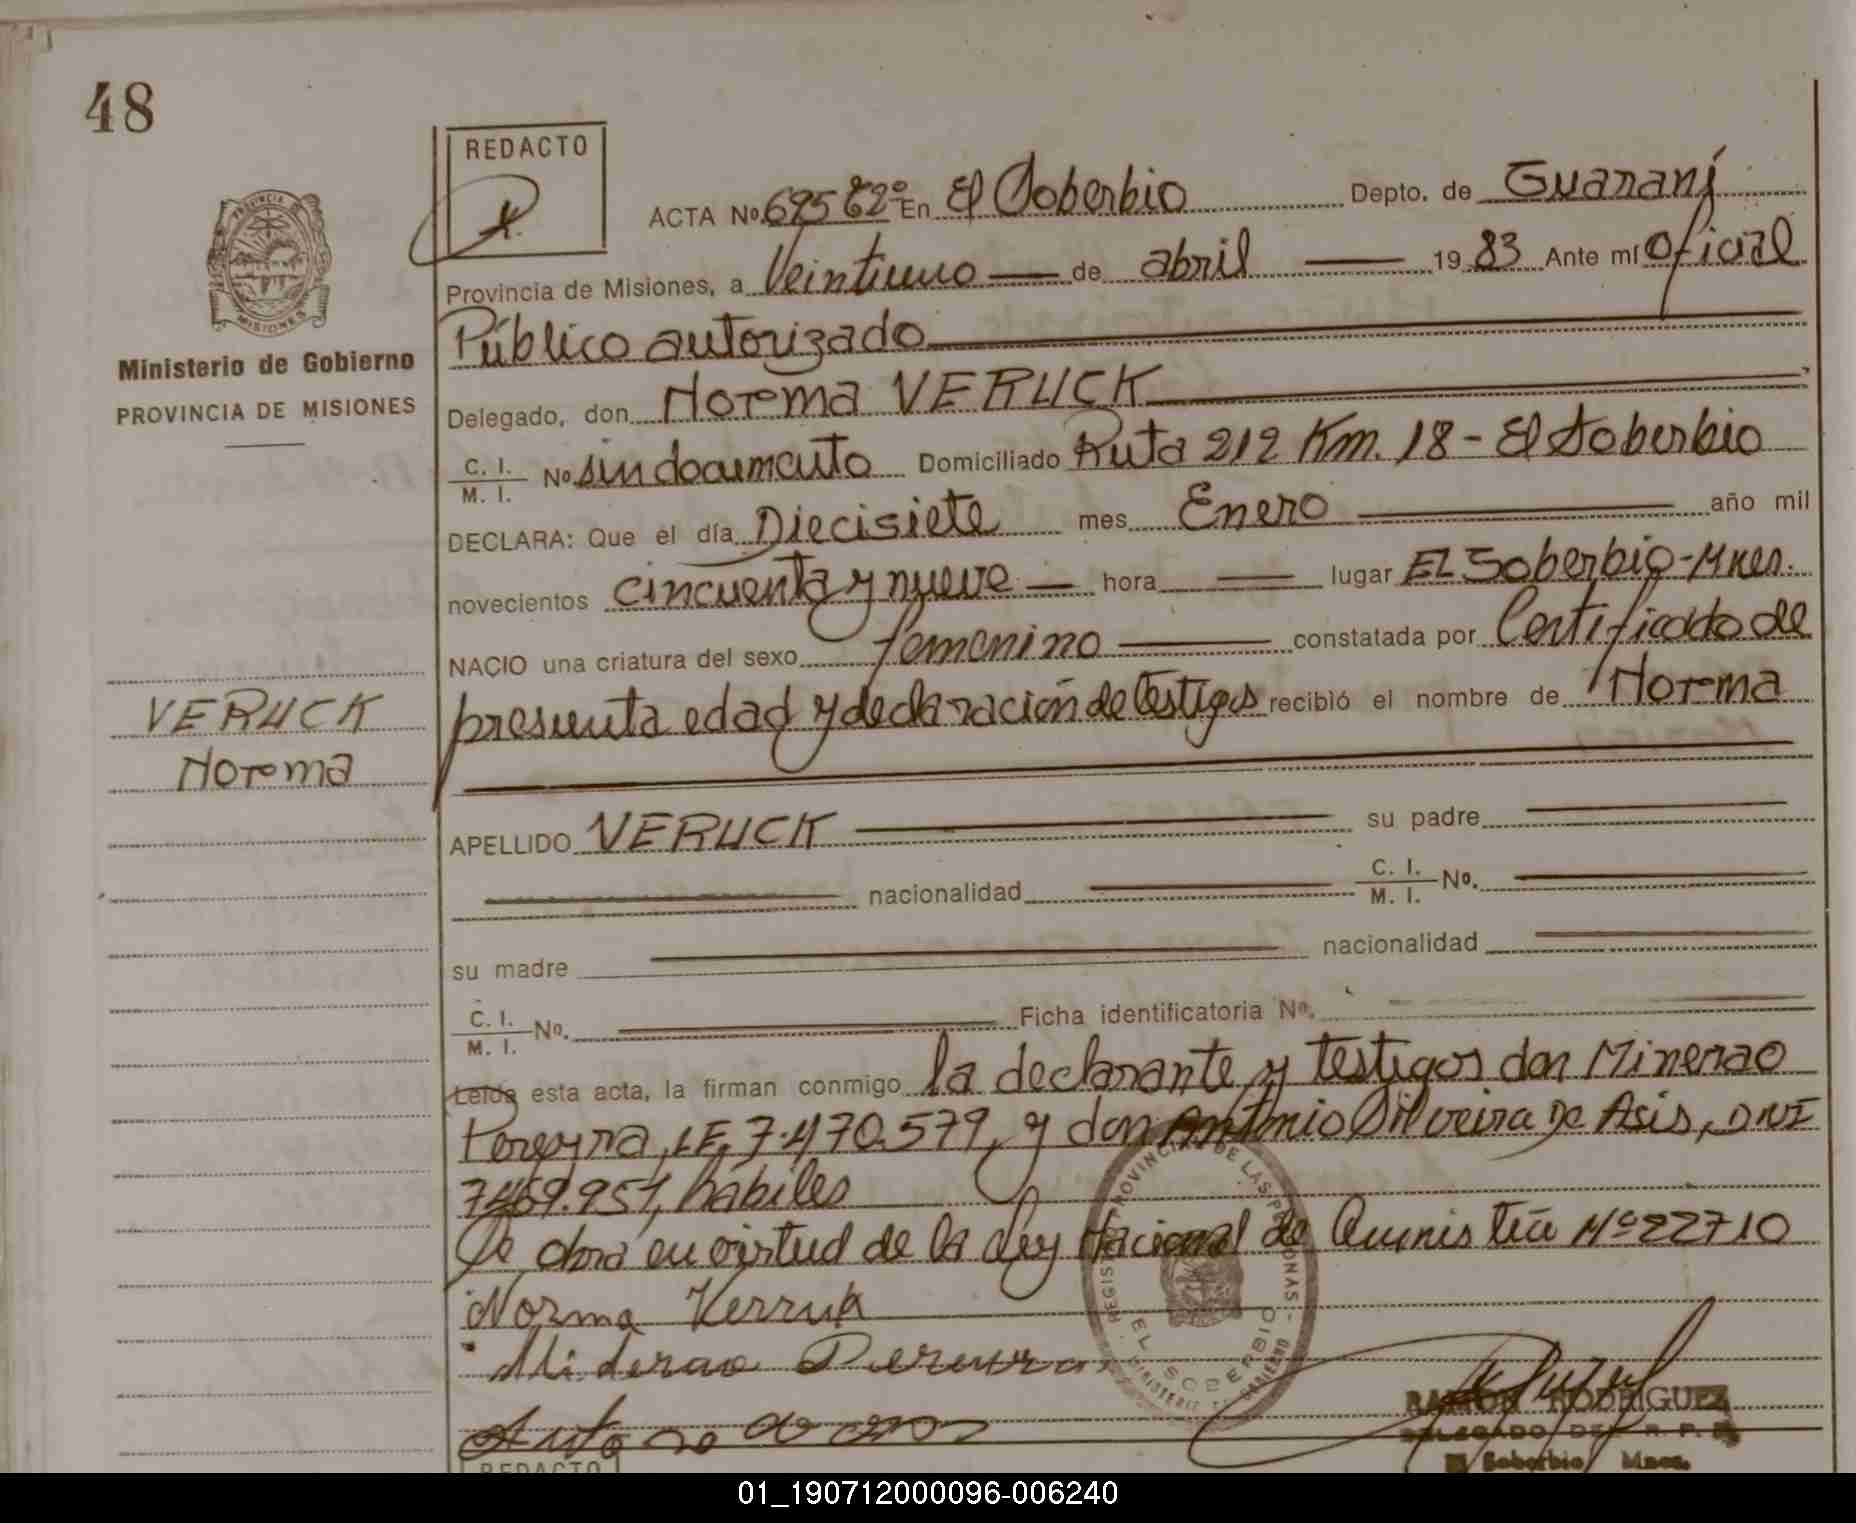 48
REDACTO
ACTA Nº 695 T2º En El Soberbio Depto. de Guaraní
Provincia de Misiones, a Veintiuno de abril 1983 Ante mí Oficial
Público autorizado
Ministerio de Gobierno
PROVINCIA DE MISIONES
Delegado, don Norma VERUCK
C. I.
M. I. Nº sin documento Domiciliado Ruta 212 Km. 18 - El Soberbio
DECLARA: Que el día Diecisiete mes Enero año mil
novecientos cincuenta y nueve hora lugar EL Soberbio-Mnes.
NACIO una criatura del sexo femenino constatada por Certificado de
presunta edad y declaración de testigos recibió el nombre de Norma
VERUCK
Norma
APELLIDO VERUCK su padre
nacionalidad C. I.
M. I. Nº.
su madre nacionalidad
C. I.
M. I. Nº. Ficha identificatoria Nº.
Leída esta acta, la firman conmigo la declarante y testigos don Minerao
Pereyra, LE. 7.470.579, y don Antonio Silveira De Asis, DNI
7469.951, habiles
Se obra en virtud de la Ley Nacional de Amnistía Nº 22710
Norma Verruk
REGISTRO PROVINCIAL DE LAS PERSONAS
EL SOBERBIO
RAMON RODRIGUEZ
DELEGADO DEL R. P. P.
El Soberbio Mnes.
REDACTO
01_190712000096-006240